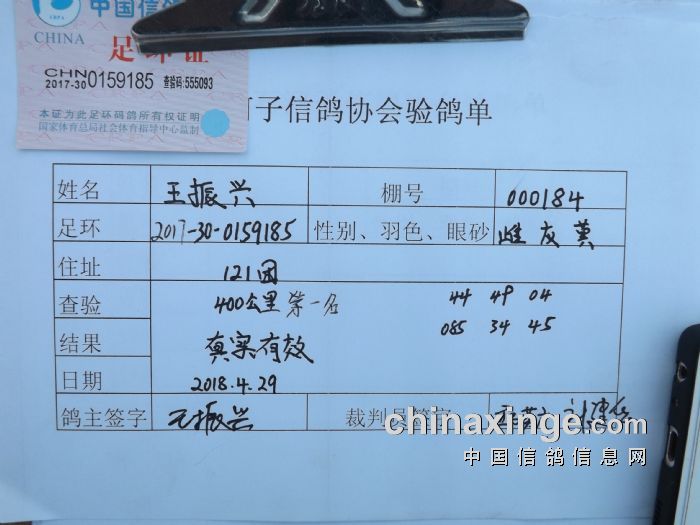 中国信鸽
CHINA
足环证
CHN
2017-30 0159185 查验码:555093
本证为此足环码鸽所有权证明
国家体育总局社会体育指导中心监制
子信鸽协会验鸽单
姓名 王振兴 棚号 000184
足环 2017-30-0159185 性别、羽色、眼砂 雌 灰 黄
住址 121团
查验 400公里 第一名 44 49 04
085 34 45
结果 真实有效
日期 2018.4.29
鸽主签字 王振兴 裁判员签字
chinaxinge.com
中国信鸽信息网